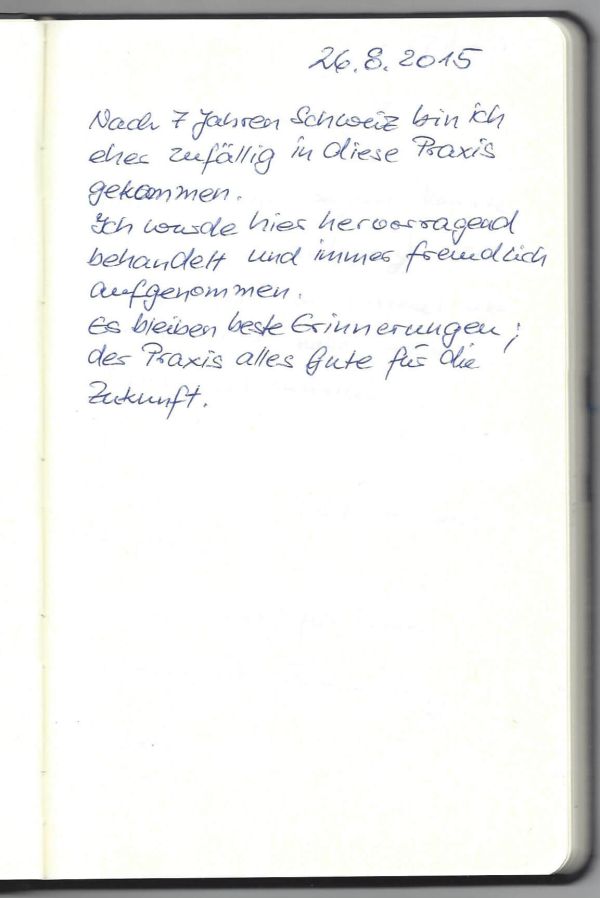 26.8.2015
Nach 7 Jahren Schweiz bin ich
eher zufällig in diese Praxis
gekommen.
Ich wurde hier hervorragend
behandelt und immer freundlich
aufgenommen.
Es bleiben beste Erinnerungen;
der Praxis alles Gute für die
Zukunft.